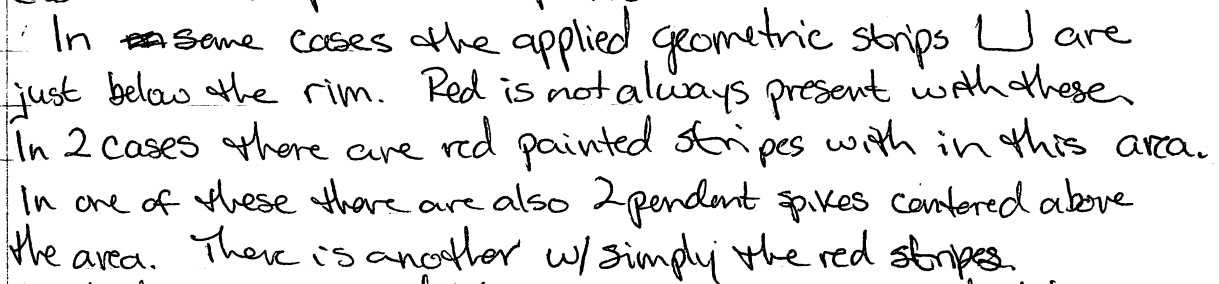 In some cases the applied geometric strips ⊔ are
just below the rim. Red is not always present with these.
In 2 cases there are red painted stripes with in this area.
In one of these there are also 2 pendent spikes centered above
the area. There is another w/ simply the red stripes.